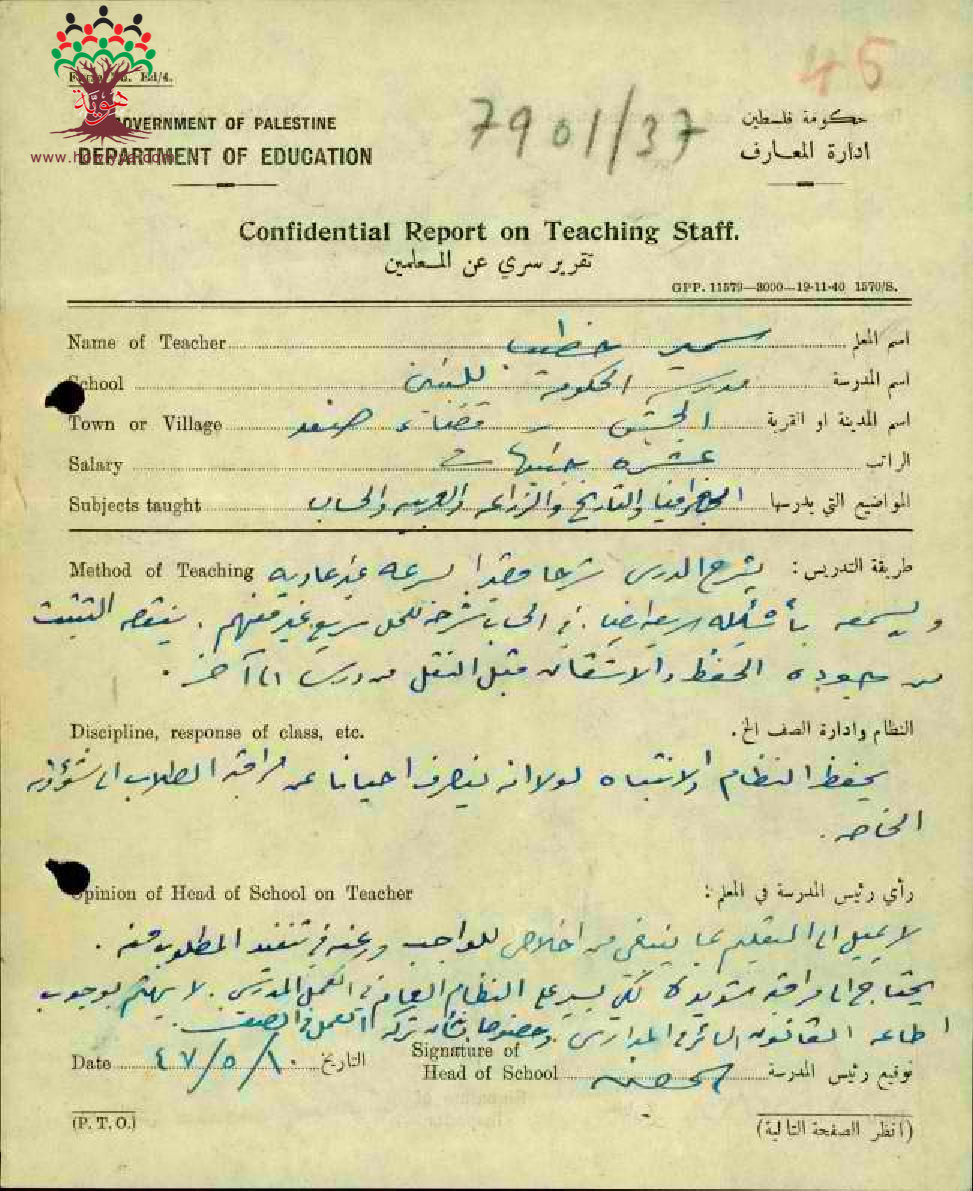 45
Ed/4.
هوية
www.howiyya.com
GOVERNMENT OF PALESTINE
DEPARTMENT OF EDUCATION
7901/37
حكومة فلسطين
ادارة المعارف
Confidential Report on Teaching Staff.
تقرير سري عن المعلمين
GPP. 11579—3000—19-11-40 1570/S.
Name of Teacher سمير خطيب اسم المعلم
School مدرسة الحكومة للبنين اسم المدرسة
Town or Village الجش قضاء صفد اسم المدينة او القرية
Salary عشرة جنيهات الراتب
Subjects taught الجغرافيا والتاريخ والزراعة والعربية والحساب المواضيع التي يدرسها
Method of Teaching يشرح الدرس شرحا مفيدا بسرعة غير عادية طريقة التدريس:
ويسمعه بأسئلة سريعة ايضا. في الحساب شرحه للحل سريع غير مفهم. ينقصه التثبت
من جودة الحفظ والاتقان قبل النقل من درس الى آخر.
Discipline, response of class, etc. النظام وادارة الصف الخ.
يحفظ النظام والانتباه لولا انه ينصرف احيانا عن مراقبة الطلاب الى شؤونه
الخاصة.
Opinion of Head of School on Teacher رأي رئيس المدرسة في المعلم:
لا يميل الى التعليم بما ينبغي من اخلاص للواجب ورغبة في تنفيذ المطلوب منه.
يحتاج الى مراقبة شديدة لكي يسير على النظام العام في العمل المدرسي. لا يهتم بوجوب
اطاعة القانون السائر في المدارس وخصوصا بشأن تركه العمل في الصف.
Date ٤٧/٥/١٠ التاريخ
Signature of
Head of School توقيع رئيس المدرسة
(P. T. O.) (انظر الصفحة التالية)